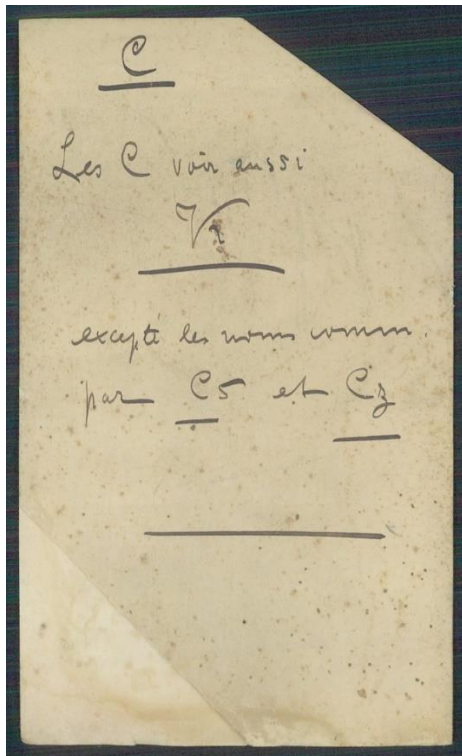 C
Les C voir aussi
V
excepté les noms comm.
par CS et Cz